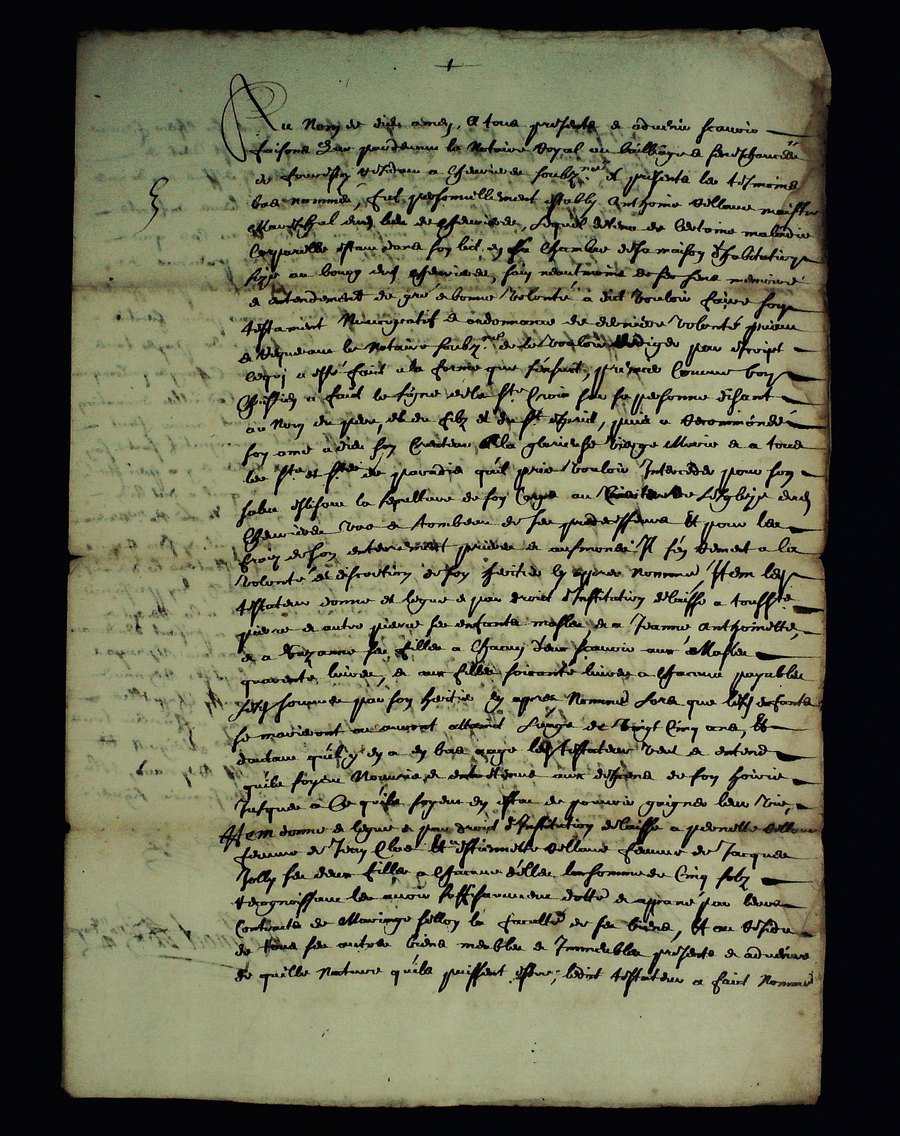 Au Nom de dieu amen, A tous presents & advenir scavoir
faisons que pardevant le Notaire Royal au bailliage & Seneschaucée
de fourestz residant a Cheurieres soubz.né et presents les tesmoins
bas nommés, fust personnellement estably Anthoine Vellaud maistre
mareschal dud lieu de Cheurieres, Lequel detenu de certaine maladie
Corporelle estant dans son lict en sa Chambre de sa maison d'habitation
size au bourg dud Cheurieres, sain neantmoins de ses sens memoire
& entendement de gré & bonne volonté a dict vouloir faire son
testament Nuncupatif & ordonnance de derniere volonté priant
& requerant le Notaire soubz.né de le vouloir rediger par escript
ce qui a esté faict a la forme que s'ensuit, premier Comme bon
Chrestien a faict le signe de la Ste Croix sur sa personne disant
au Nom du pere, et du filz et du St esprit, puis a recommandé
son ame a dieu son Createur a la glorieuse vierge Marie & a tous
les Sts et Stes de paradis qu'il prie vouloir Interceder pour son
salut eslisant la sepulture de son Corps au Cimetiere de L'esglize dud
Cheurieres vas & tombeau de ses predecesseurs Et pour les
fraiz de son enterrement prieres & aulmones Il s'en remet a la
volonté & discretion de son heritier cy apres nommé Item led
testateur donne et legue & par droict d'Institution delaisse a
pierre & autre pierre ses enfants masles, & a Jeanne Anthoinette,
& a Suzanne ses filles a Chacun d'eux scavoir aux Masles
quarente livres, & aux filles soixante livres a Chacune payables
lesd sommes par son heritier cy apres Nommé Lors que lesd enfants
se marieront ou auront attaint L'aage de vingt Cinq ans, Et
d'autant qu'il y en a en bas aage led testateur veut & entend
qu'ils soyent Nourris & entretenus aux despens de son hoirie
Jusques a Ce qu'ils soyent en estat de pouvoir gaigner leur vie,
Item donne & legue & par droict d'Institution delaisse a pernette Vellaud
femme de Jean Clos Et a estiennette Vellaud femme de Jacques
Jolly ses deux filles a Chacune d'elles la somme de Cinq solz
recognoissant les avoir suffisamment dotté & apané par leurs
Contratz de Mariage sellon la faculté de ses biens, Et au residu
de tous ses autres biens meubles & Immeubles presents & advenir
de quelle Nature qu'ils puissent estre, ledit testateur a faict Nommé